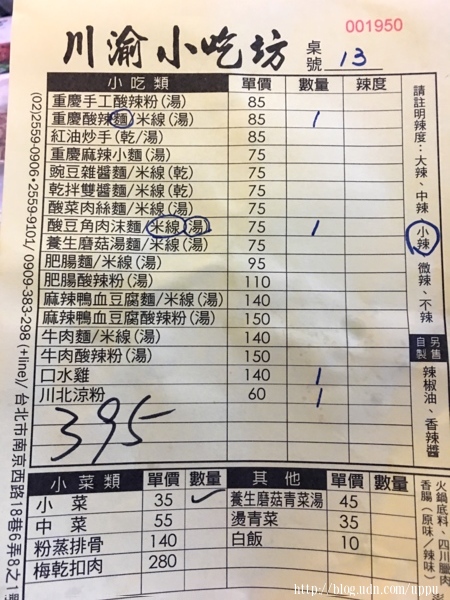 001950
川渝小吃坊 桌號 13
小吃類 單價 數量 辣度
重慶手工酸辣粉(湯) 85
重慶酸辣麵/米線(湯) 85 1
紅油炒手(乾/湯) 85
重慶麻辣小麵(湯) 75
豌豆雜醬麵/米線(乾) 75
乾拌雙醬麵/米線(乾) 75
酸菜肉絲麵/米線(湯) 75
酸豆角肉沫麵/米線(湯) 75 1
養生蘑菇湯麵/米線(湯) 75
肥腸麵/米線(湯) 95
肥腸酸辣粉(湯) 110
麻辣鴨血豆腐麵/米線(湯) 140
麻辣鴨血豆腐酸辣粉(湯) 150
牛肉麵/米線(湯) 140
牛肉酸辣粉(湯) 150
口水雞 140 1
川北涼粉 60 1
395
請註明辣度：大辣、中辣、小辣、微辣、不辣
另售自製 辣椒油、香辣醬
小菜類 單價 數量
小菜 35 ✓
中菜 55
粉蒸排骨 140
梅乾扣肉 280
其他 單價 數量
養生蘑菇青菜湯 45
燙青菜 35
白飯 10
火鍋底料、四川臘肉
香腸(原味/辣味)
(02)2559-0906•2559-9101/ 0909-383-298 (+line)/ 台北市南京西路18巷6弄8之1號
http://blog.udn.com/uppu